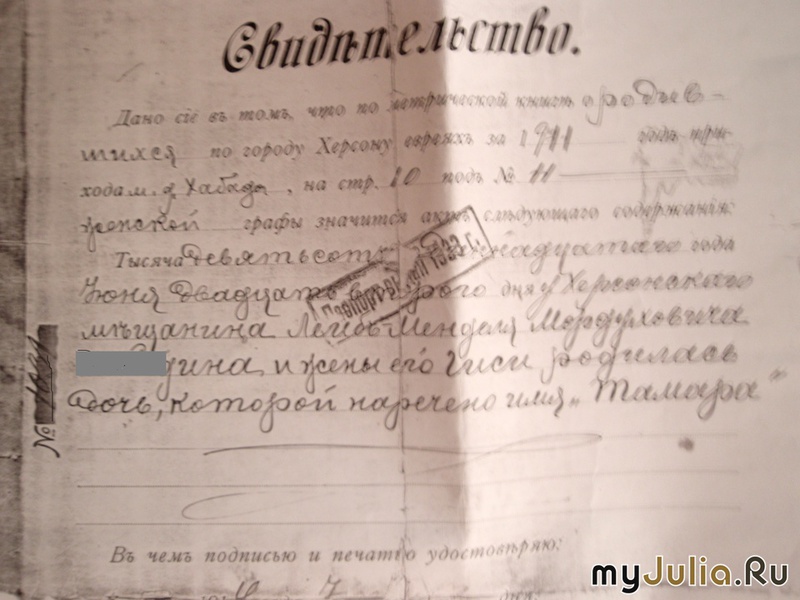 Свидѣтельство.
Дано сіе въ томъ, что по метрической книгѣ о родив-
шихся по городу Херсону евреяхъ за 1911 годъ при-
хода м. д. Хабадъ, на стр. 10 подъ № 11
женской графы значится актъ слѣдующаго содержанія:
Тысяча девятьсотъ надцатаго года
Іюня двадцать второго дня у Херсонскаго
мѣщанина Лейбъ-Менделя Мордуховича
дина, и жены его Гиси родилась
дочь, которой наречено имя „Тамара"
Паспортизация 1933 г.
№
Въ чемъ подписью и печатью удостовѣряю:
myJulia.Ru